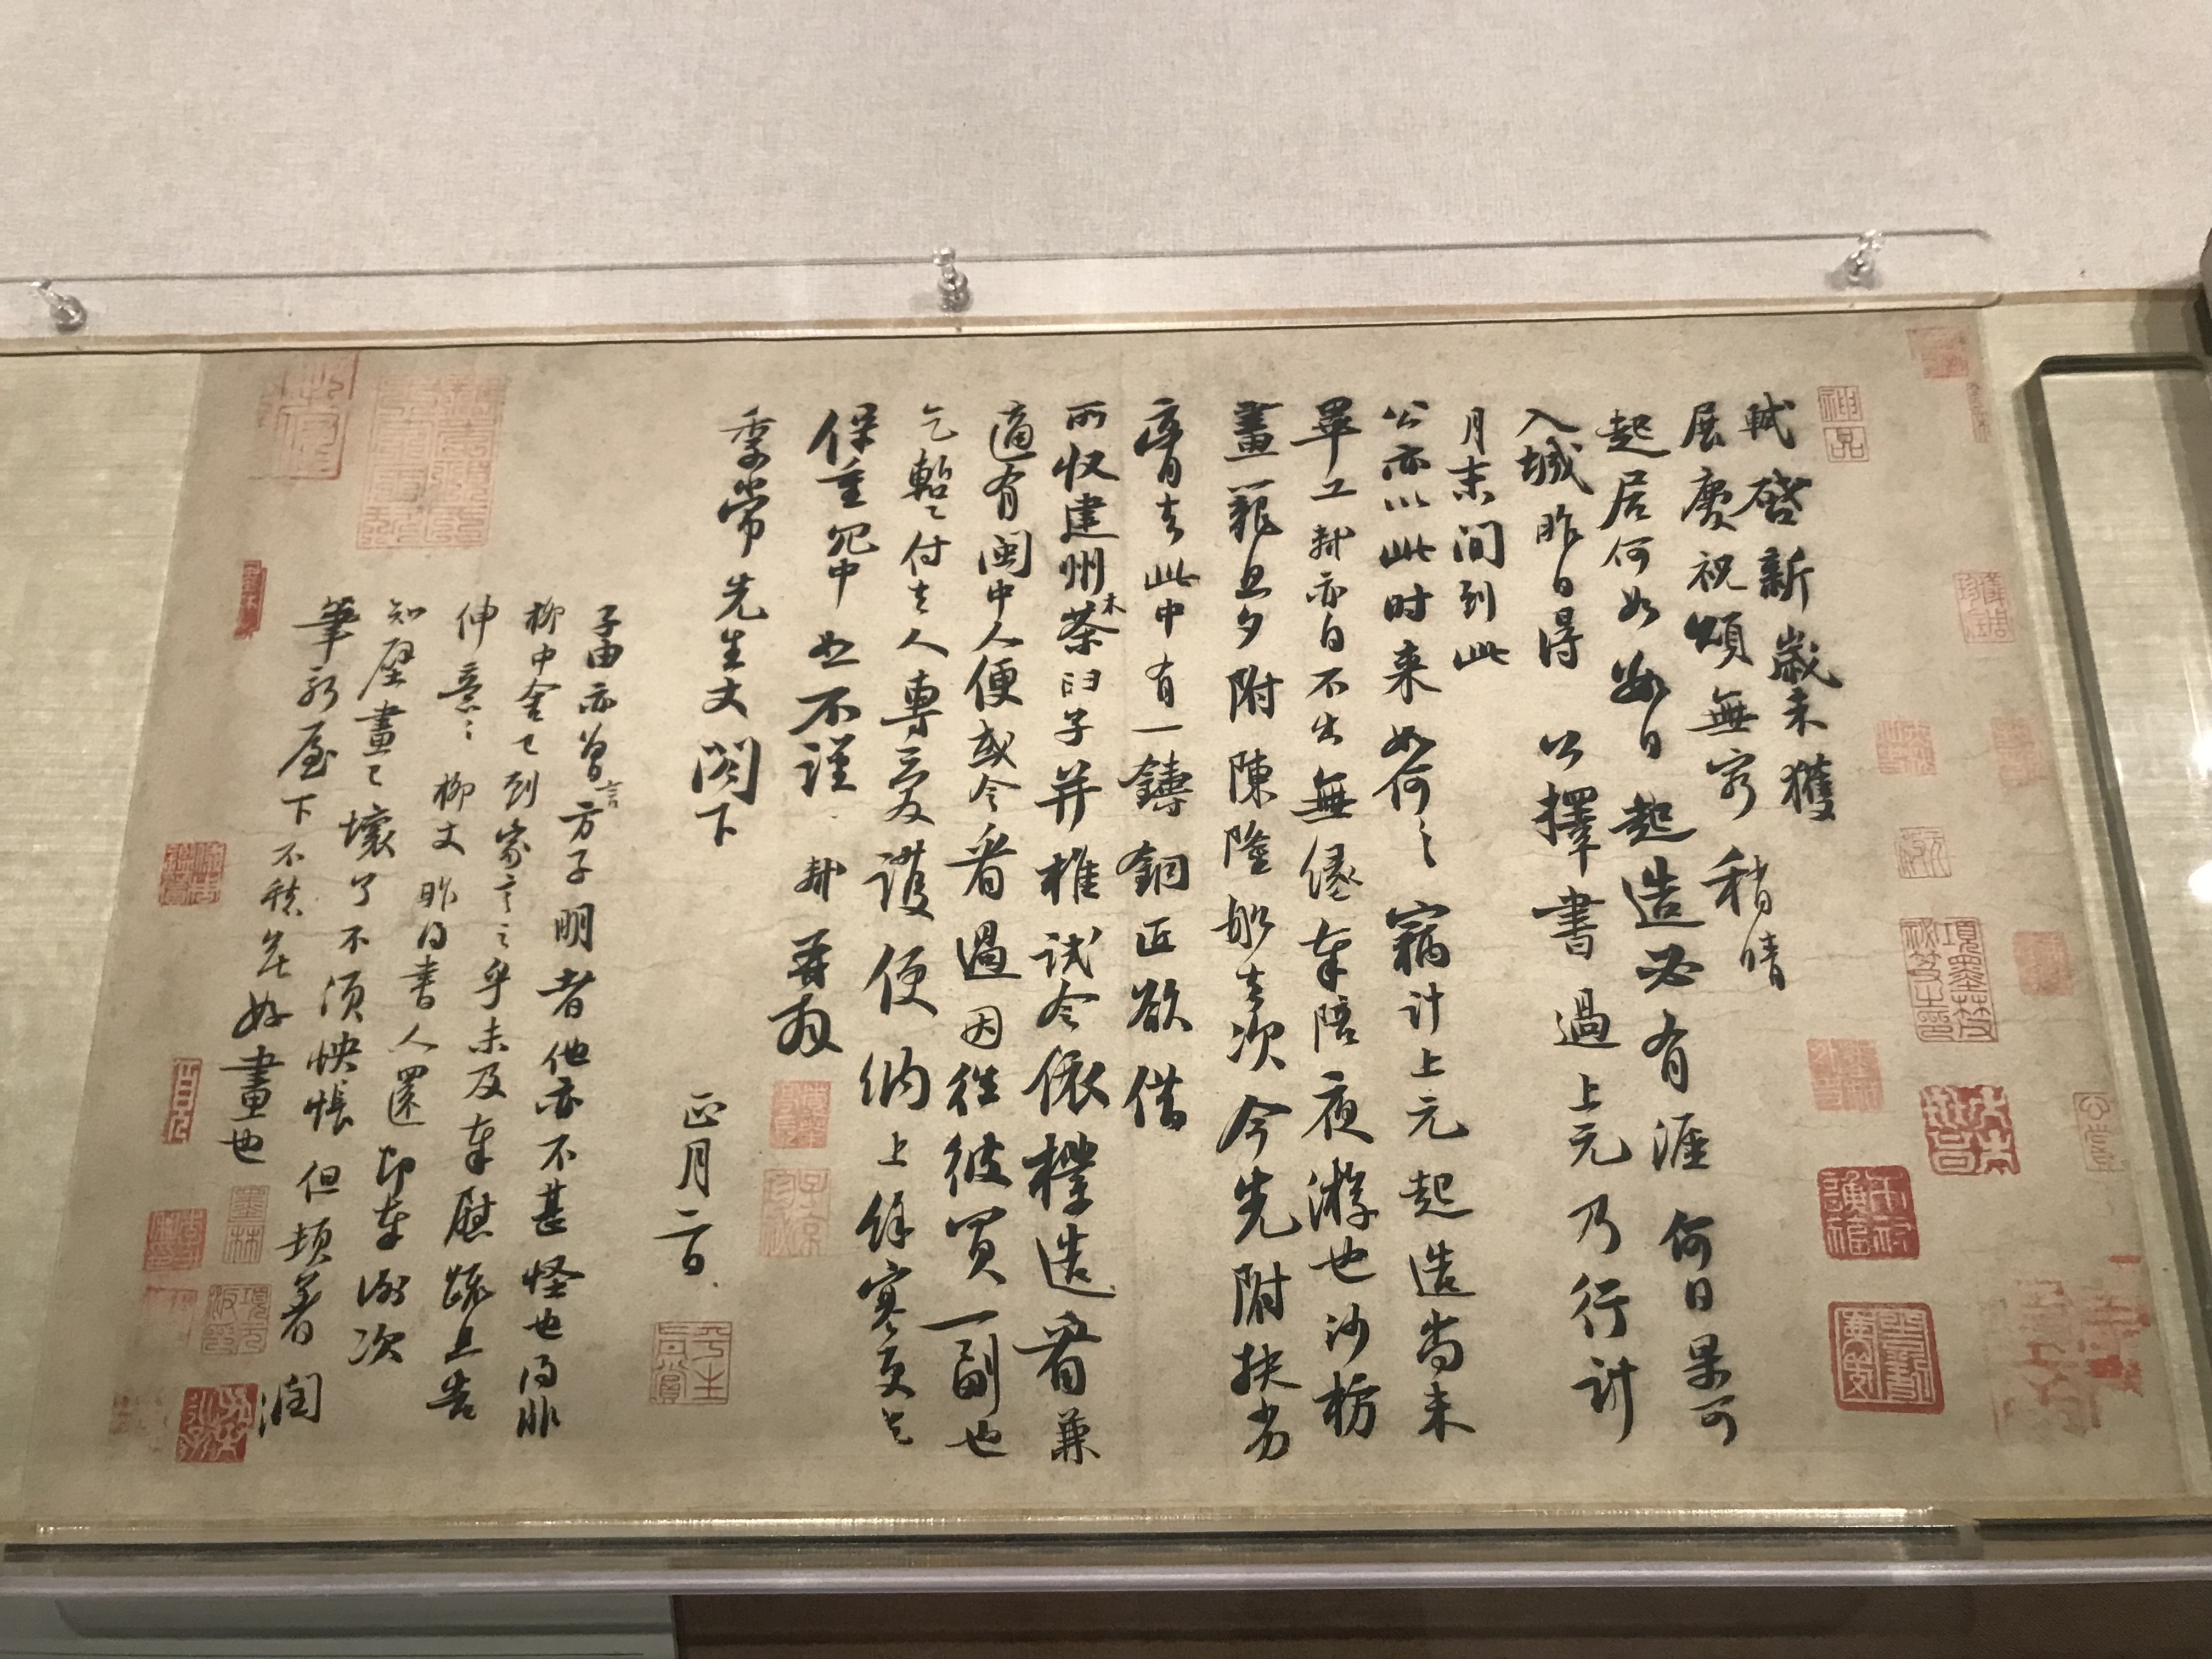 軾啓新歲未獲
展慶祝頌無窮稍晴
起居何如數日起造必有涯何日果可
入城昨日得公擇書過上元乃行計
月末間到此
公亦以此时来如何〻竊計上元起造尚未
畢工軾亦自不出無緣奉陪夜遊也沙枋
畫籠旦夕附陳隆船去次今先附扶劣
膏去此中有一鑄銅匠欲借
所收建州木茶臼子并椎試令依樣造看兼
適有閩中人便或令看過因往彼買一副也
乞暫〻付去人專愛護便納上餘寒更乞
保重冗中恕不謹軾再拜
季常先生丈閣下
正月二日
子由亦曾言方子明者他亦不甚怪也得非
柳中舍已到家言之乎未及奉慰疏且告
伸意〻柳丈昨得書人還即奉謝次
知壁畫已壞了不須怏悵但頓著潤
筆新屋下不愁無好畫也
神品
墨林
子京
平生真賞
項墨林父秘笈之印